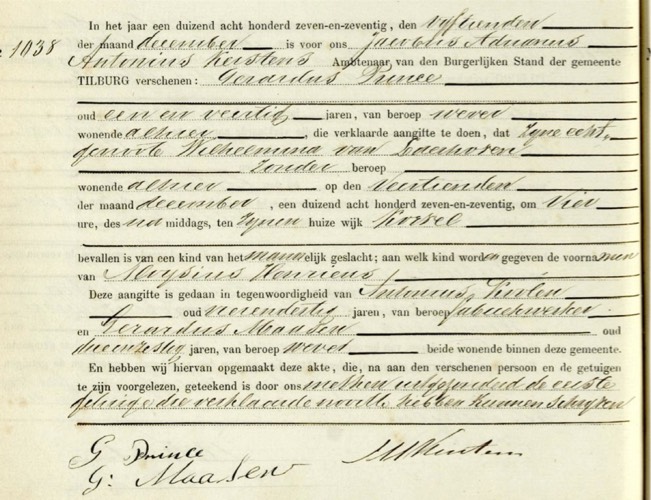 In het jaar een duizend acht honderd zeven-en-zeventig, den vijftienden
1038 der maand december is voor ons Jacobus Adrianus
Antonius Kerstens Ambtenaar van den Burgerlijken Stand der gemeente
TILBURG verschenen: Gerardus Prince
oud een en veertig jaren, van beroep wever
wonende alhier, die verklaarde aangifte te doen, dat zyne echt-
genoote Wilhelmina van
zonder beroep
wonende alhier op den veertienden
der maand december, een duizend acht honderd zeven-en-zeventig, om vier
ure, des na middags, ten zynen huize wijk Korvel
bevallen is van een kind van het mannelijk geslacht; aan welk kind worden gegeven de voornamen
van Aloysius Henricus
Deze aangifte is gedaan in tegenwoordigheid van Antonius
oud jaren, van beroep fabriekwerker
en Gerardus Maasen oud
drieenzestig jaren, van beroep wever beide wonende binnen deze gemeente.
En hebben wij hiervan opgemaakt deze akte, die, na aan den verschenen persoon en de getuigen
te zijn voorgelezen, geteekend is door ons met hen uitgezonderd de eerste
getuige die verklaarde nooit te hebben kunnen schryven
G Prince
G: Maasen